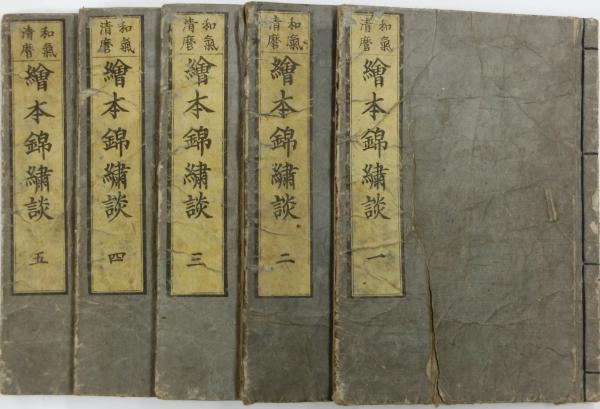 和氣
清麿
繪本錦繡談
一
和氣
清麿
繪本錦繡談
二
和氣
清麿
繪本錦繡談
三
和氣
清麿
繪本錦繡談
四
和氣
清麿
繪本錦繡談
五